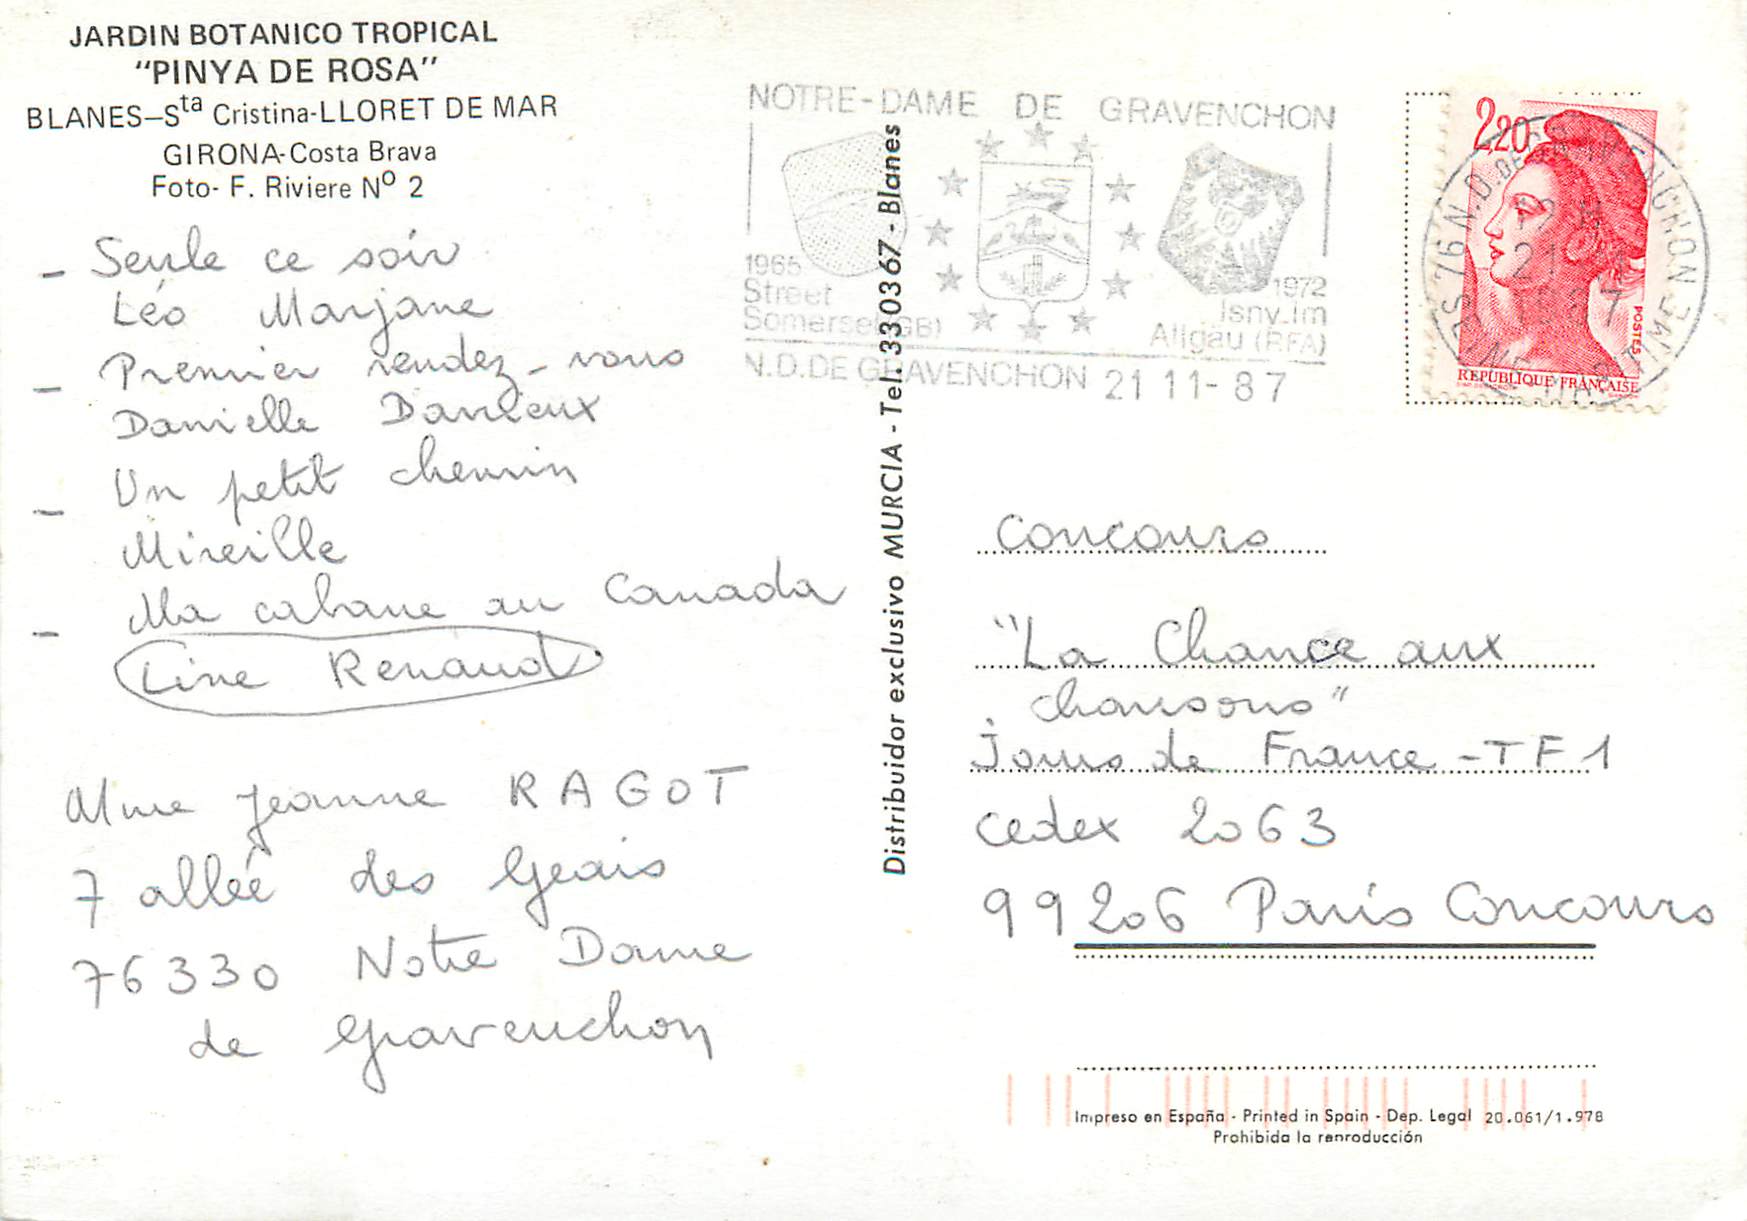 JARDIN BOTANICO TROPICAL
"PINYA DE ROSA"
BLANES-Sta Cristina-LLORET DE MAR
GIRONA-Costa Brava
Foto- F. Riviere Nº 2
- Seule ce soir
Léo Marjane
- Premier rendez-vous
Danielle Darrieux
- Un petit chemin
Mireille
- Ma cabane au Canada
Line Renaud
Mme Jeanne RAGOT
7 allée des Geais
76330 Notre Dame
de Gravenchon
Distribuidor exclusivo MURCIA - Tel. 330367 - Blanes
NOTRE-DAME DE GRAVENCHON
1965
Street
Somerset (GB)
1972
Isny.im
Allgau (RFA)
N.D.DE GRAVENCHON 21 11-87
2,20
POSTES
REPUBLIQUE FRANÇAISE
76 N.D. DE GRAVENCHON
SEINE MARITIME
Concours
"La Chance aux
chansons"
Jours de France - TF1
Cedex 2063
99206 Paris Concours
Impreso en España - Printed in Spain - Dep. Legal 20.061/1.978
Prohibida la reproducción